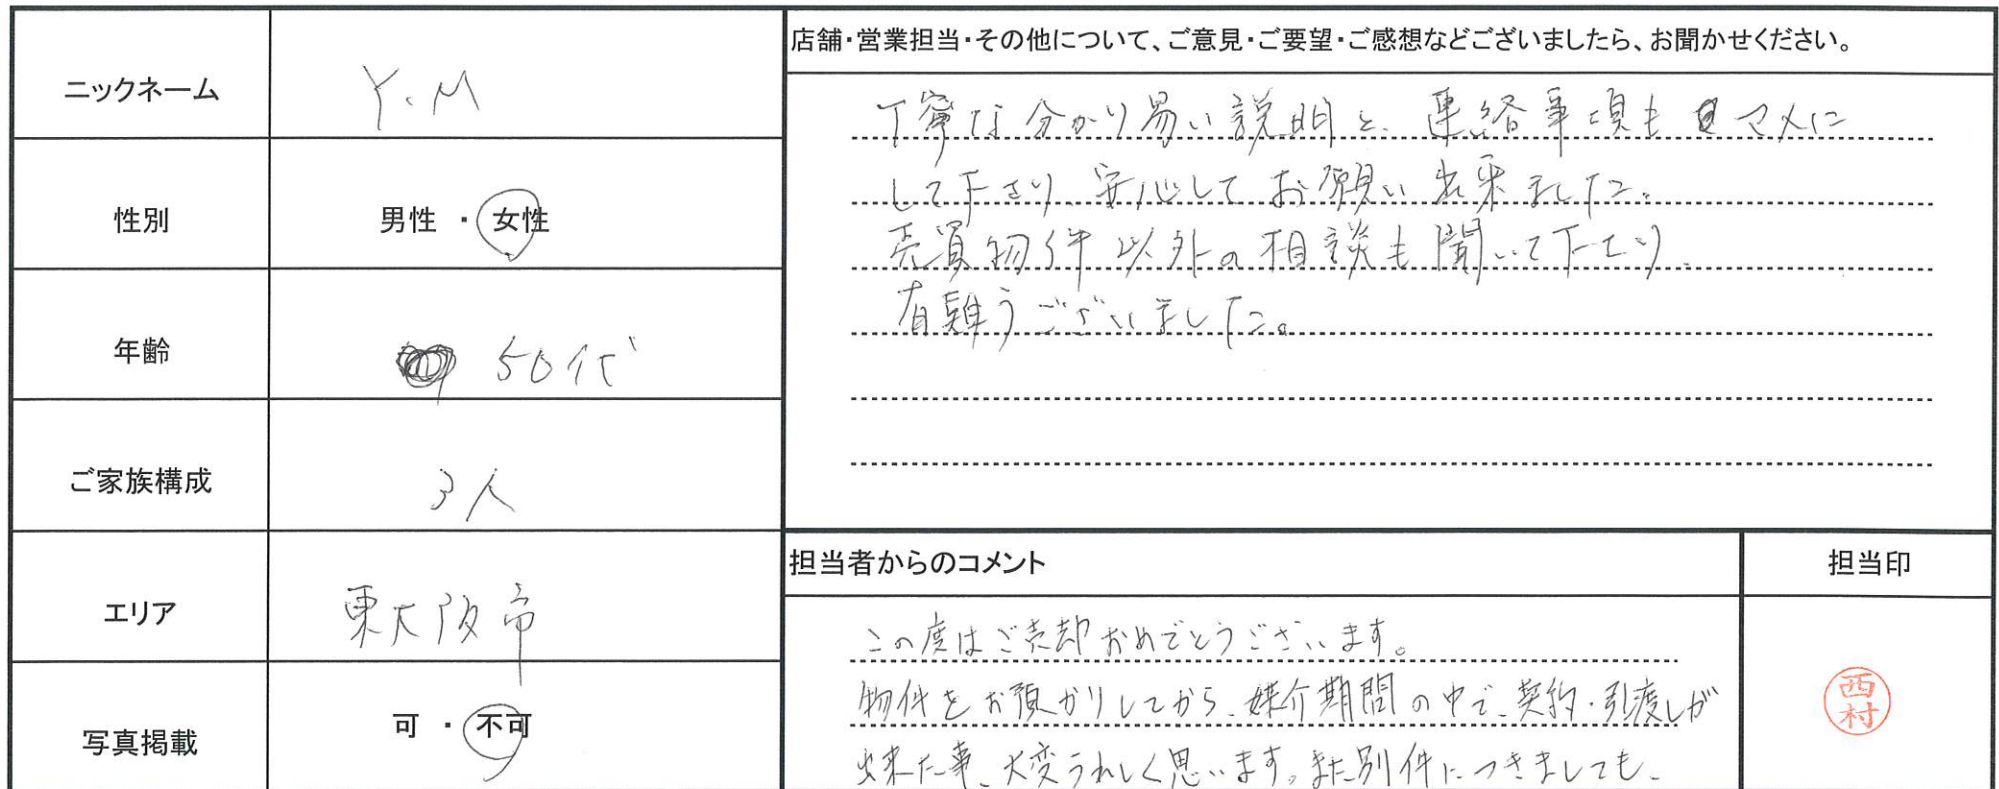 ニックネーム
Y.M
性別
男性 ・ 女性
年齢
50代
ご家族構成
3人
エリア
東大阪市
写真掲載
可 ・ 不可
店舗・営業担当・その他について、ご意見・ご要望・ご感想などございましたら、お聞かせください。
丁寧な分かり易い説明と、連絡事項もマメに
して下さり、安心してお願い出来ました。
売買物件以外の相談も聞いて下さり、
有難うございました。
担当者からのコメント
この度はご売却おめでとうございます。
物件をお預かりしてから、媒介期間の中で、契約・引渡しが
出来た事、大変うれしく思います。また別件につきましても、
担当印
西村